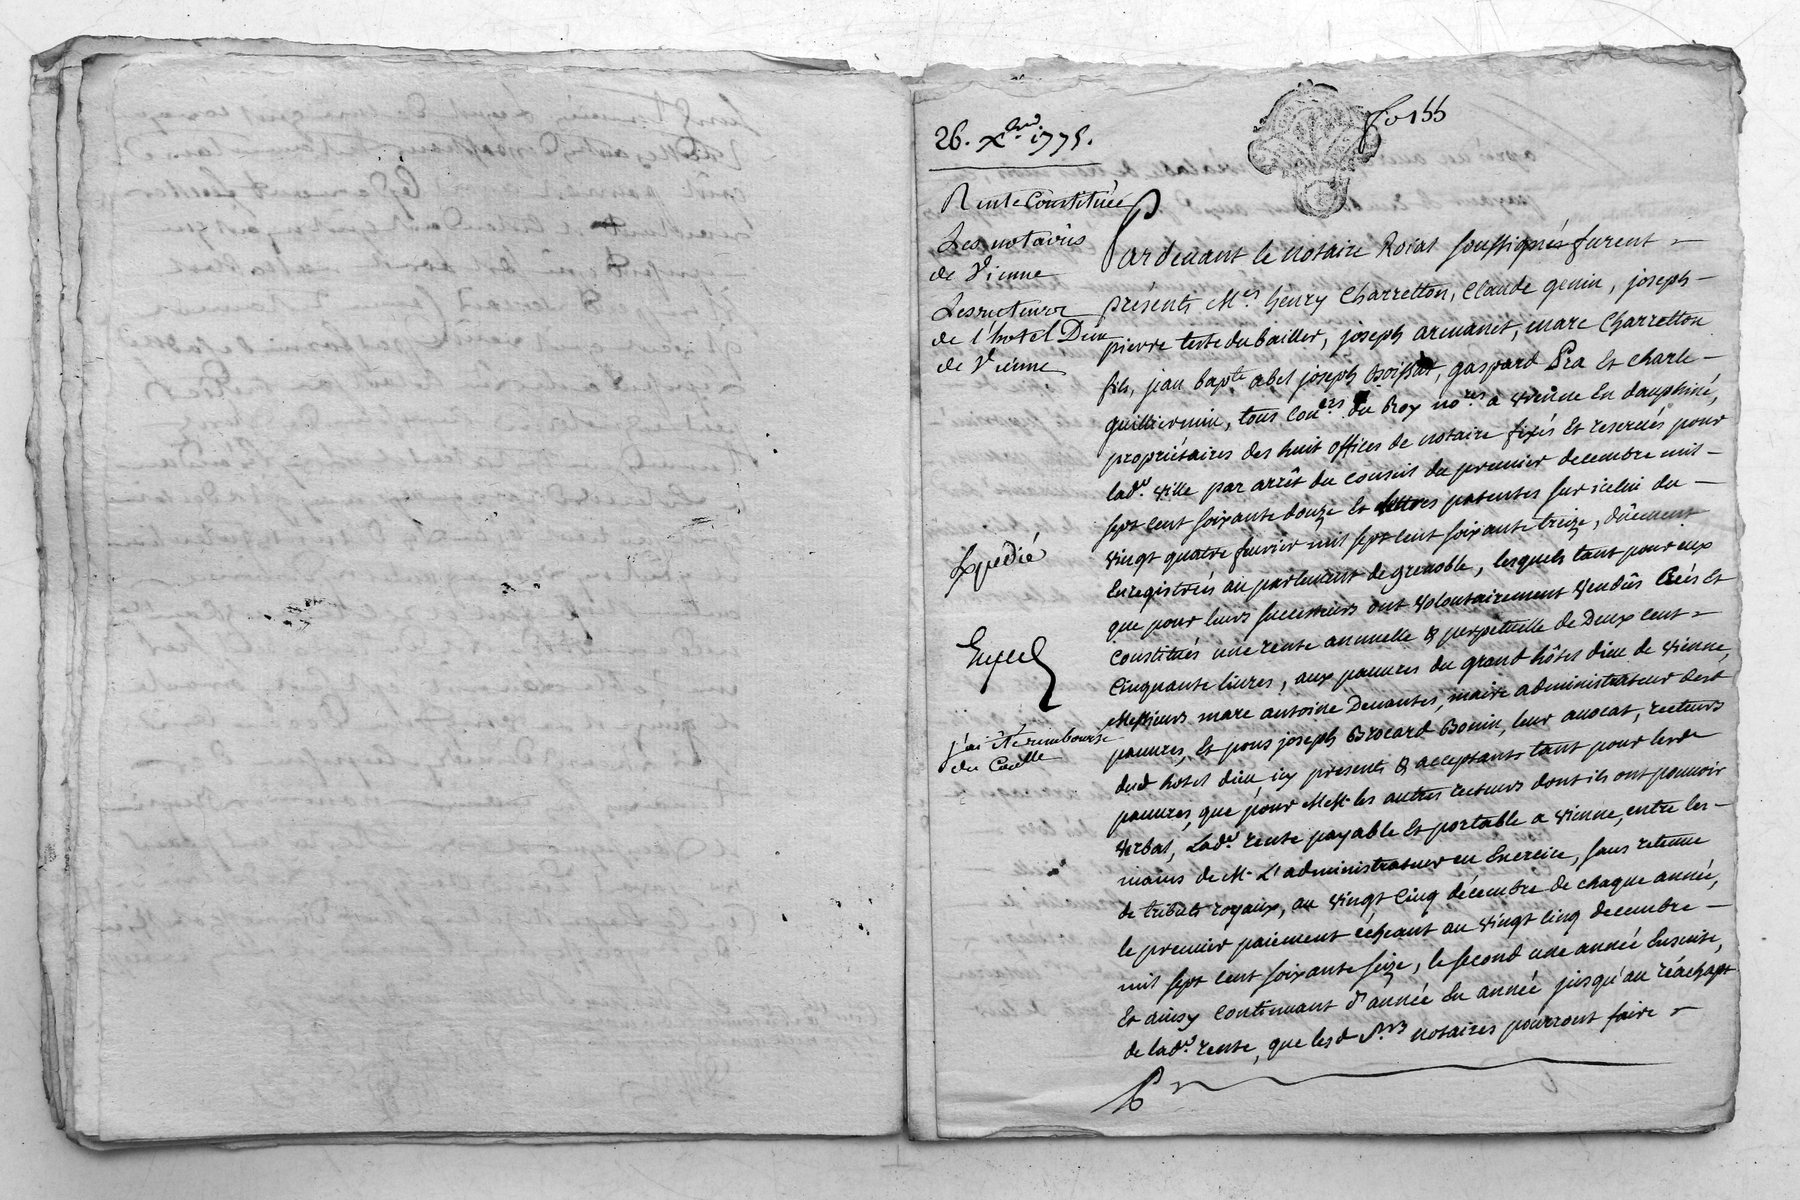 fo 155
26. Xbre 1775.
Rente Constituée
Les notaires
de Vienne
Les recteurs
de l'hotel Dieu
de Vienne
Expédié
j'ai été remboursé
du Contrôlle
Pardevant le notaire Roial soussignés furent
présents Mes henry Charretton, Claude genin, joseph
pierre teste du bailler, joseph armanet, marc Charretton
fils, jean bapte abel joseph Boissat, gaspard Pra et charle
guilliermin, tous Coners du Roy nores a vienne En dauphiné,
propriétaires des huit offices de notaire fixés Et reservés pour
lade ville par arrêt du conseil du premier decembre mil
sept cent soixante douze Et lettres patentes sur icelui du
vingt quatre fevrier mil sept cent soixante treize, dûement
Enregistrés au parlement de grenoble, lesquels tant pour eux
que pour leurs successeurs ont volontairement vendûs Créés Et
Constitués une rente annuelle & perpetuelle de Deux cent
Cinquante livres, aux pauvres du grand hôtel dieu de vienne,
Messieurs marc antoine Devantes, maire administrateur desd
pauvres, Et pons joseph Brocard Bonin, leur avocat, recteurs
dud hotel dieu, icy presents & acceptants tant pour lesds
pauvres, que pour MM. les autres recteurs dont ils ont pouvoir
verbal, Lade rente payable Et portable a vienne, entre les
mains de M. L'administrateur en Exercice, sans retenue
de tributs royaux, au vingt Cinq décembre de chaque année,
le premier paiement échéant au vingt Cinq decembre
mil sept cent soixante seize, le second une année Ensuite,
Et ainsy Continuant d'année En année jusqu'au réachapt
de lade rente, que lesd Srs notaires pourront faire